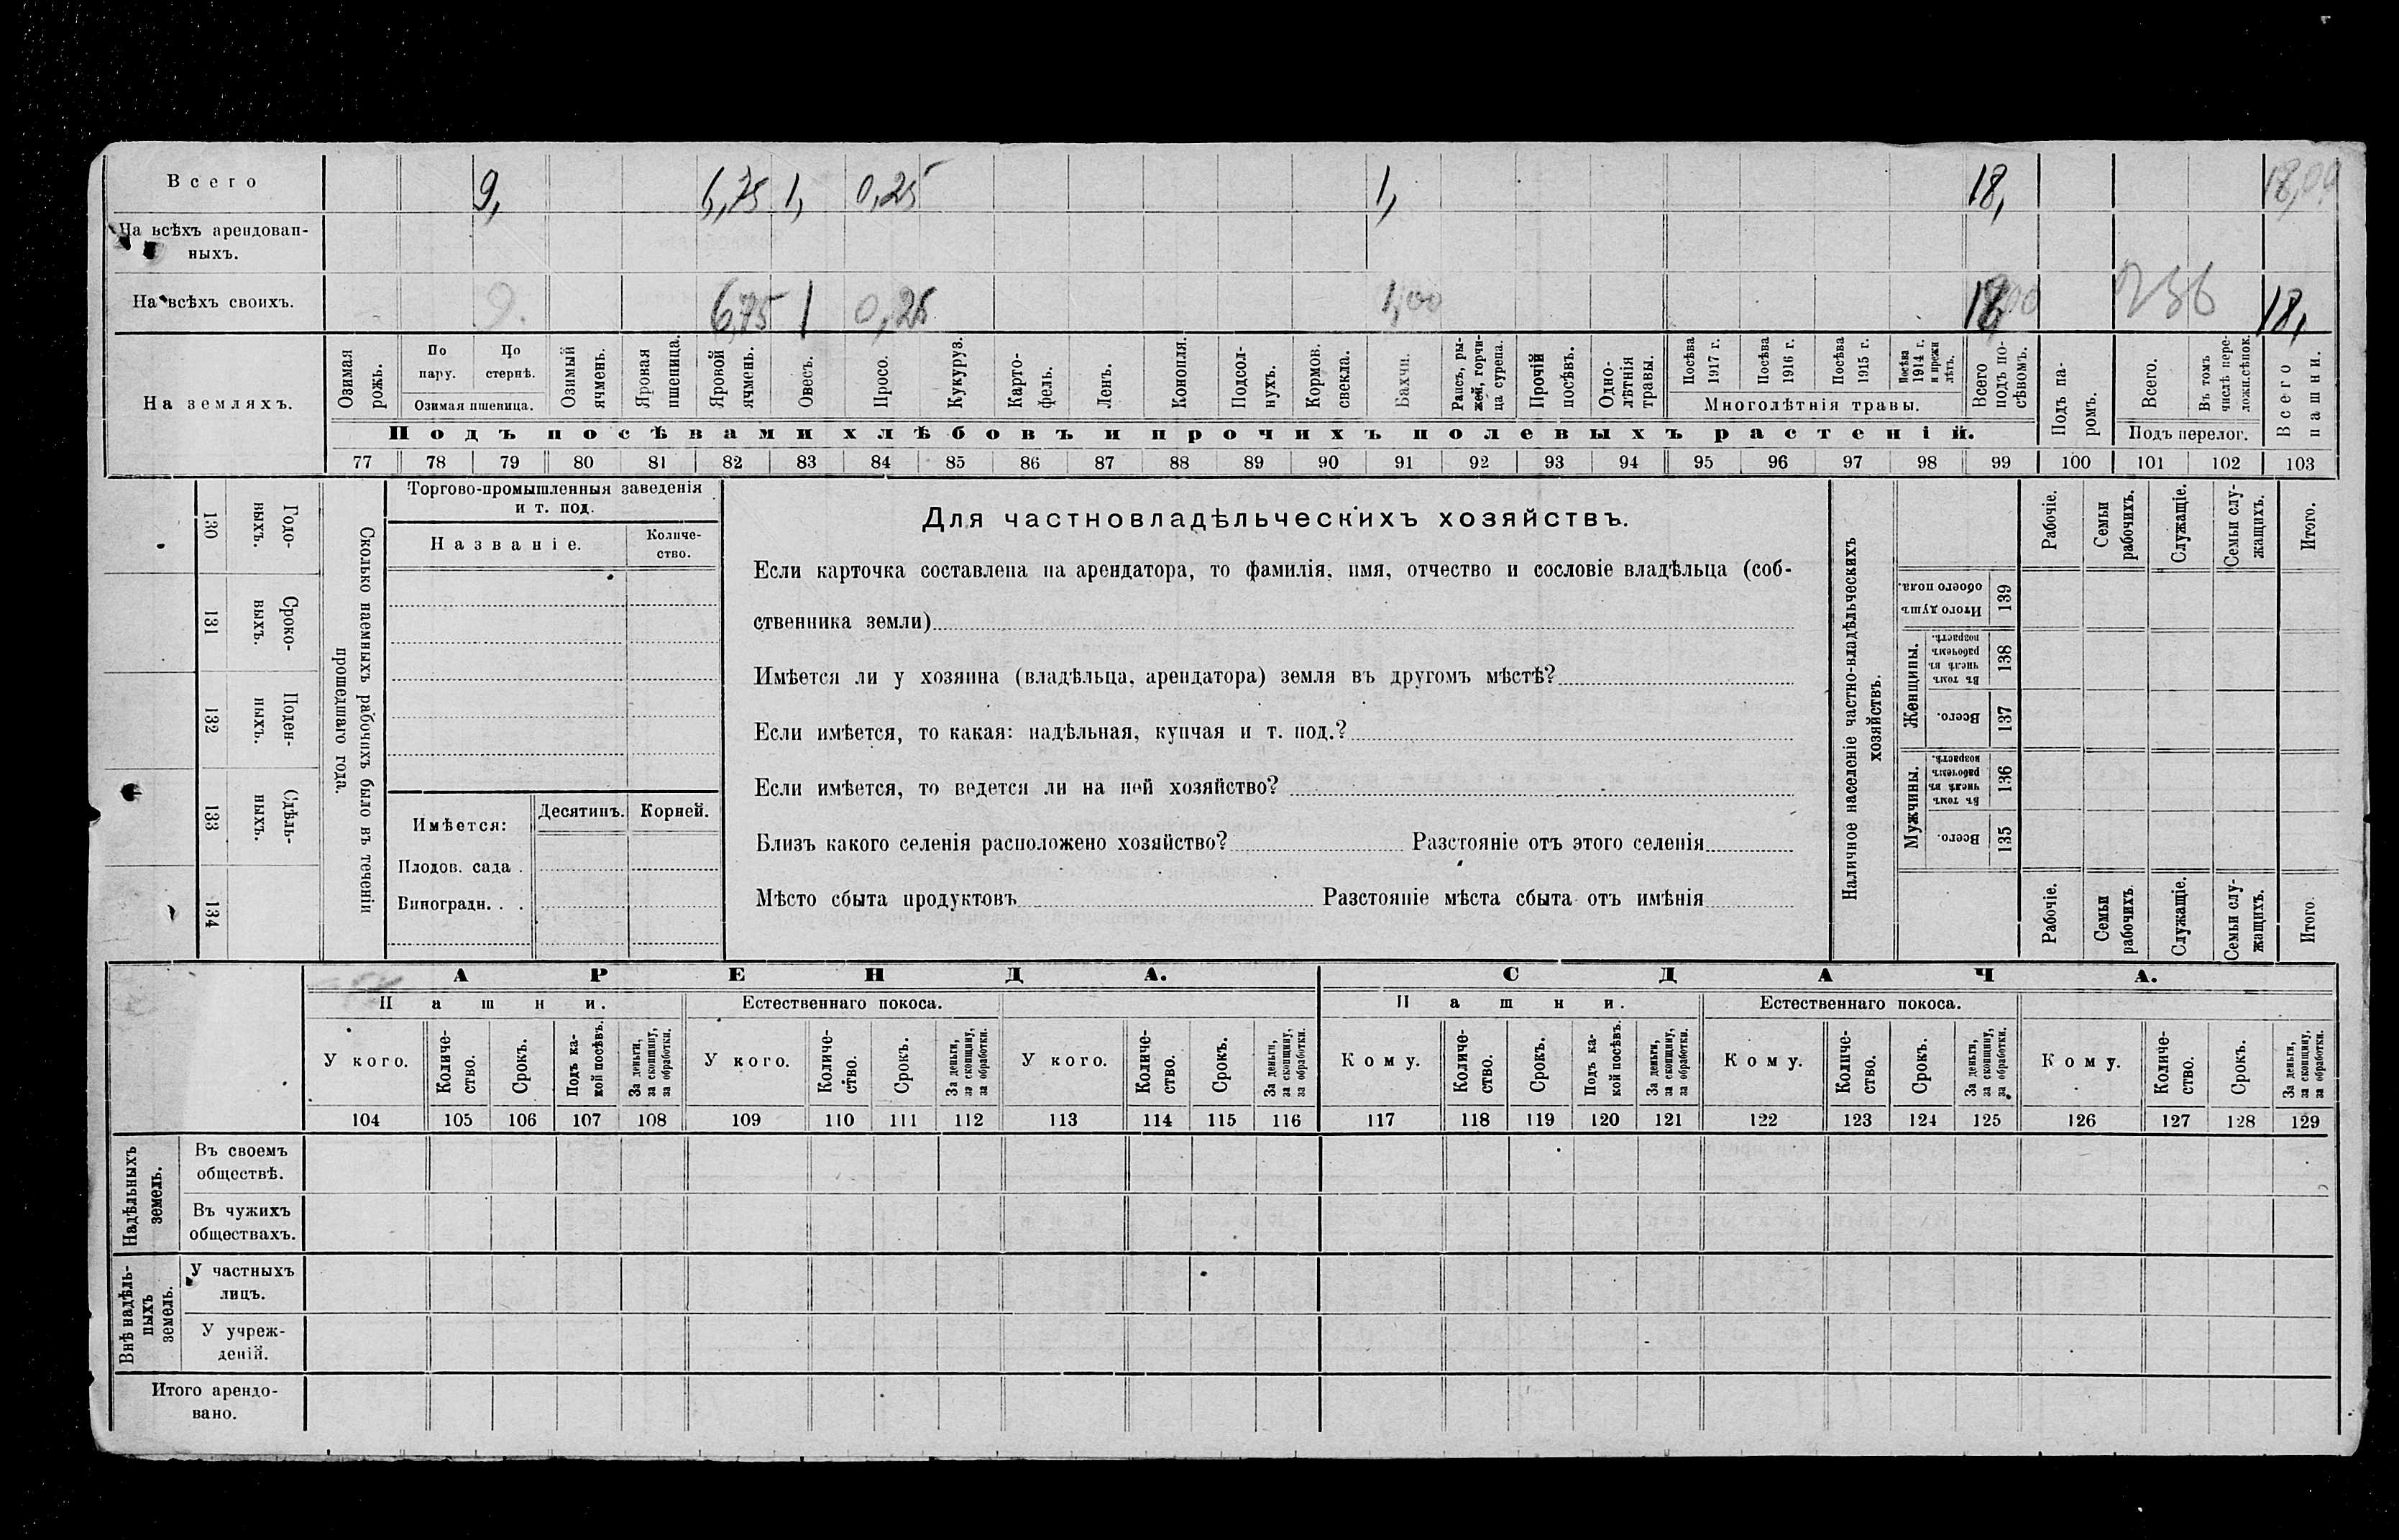 Всего 9, 6,75 1, 0,25 1, 18, 18,00
На всѣхъ арендован-
ныхъ.
На всѣхъ своихъ. 9. 6,75 1 0,25 1,00 18,00 18,
На земляхъ.
Озимая рожь.
По пару.
По стернѣ.
Озимая пшеница.
Озимый ячмень.
Яровая пшеница.
Яровой ячмень.
Овесъ.
Просо.
Кукуруз.
Карто-
фель.
Ленъ.
Конопля.
Подсол-
нухъ.
Кормов. свекла.
Бахчи.
Рапсъ, ры-
жей, горчи-
ца сурепа.
Прочій посѣвъ.
Одно-
лѣтнія травы.
Посѣва 1917 г.
Посѣва 1916 г.
Посѣва 1915 г.
Посѣва 1914 г. и прежн лѣтъ.
Многолѣтнія травы.
Всего подъ по-
сѣвомъ.
Подъ па-
ромъ.
Всего.
Въ томъ числѣ пере-
ложн.сѣнок.
Подъ перелог.
Всего пашни.
Подъ посѣвами хлѣбовъ и прочихъ полевыхъ растеній.
77 78 79 80 81 82 83 84 85 86 87 88 89 90 91 92 93 94 95 96 97 98 99 100 101 102 103
130 Годо-
ныхъ.
131 Сроко-
выхъ.
132 Поден-
ныхъ.
133 Сдѣль-
ныхъ.
134
Сколько наемныхъ рабочихъ было въ теченіи
прошедшаго года.
Торгово-промышленныя заведенія
и т. под.
Названіе.
Количе-
ство.
Имѣется:
Десятинъ.
Корней.
Плодов. сада .
Виноградн. . .
Для частновладѣльческихъ хозяйствъ.
Если карточка составлена на арендатора, то фамилія, имя, отчество и сословіе владѣльца (соб-
ственника земли)
Имѣется ли у хозяина (владѣльца, арендатора) земля въ другомъ мѣстѣ?
Если имѣется, то какая: надѣльная, купчая и т. под.?
Если имѣется, то ведется ли на ней хозяйство?
Близъ какого селенія расположено хозяйство? Разстояніе отъ этого селенія
Мѣсто сбыта продуктовъ Разстояніе мѣста сбыта отъ имѣнія
Наличное населеніе частно-владѣльческихъ
хозяйствъ.
Рабочіе.
Семьи рабочихъ.
Служащіе.
Семьи слу-
жащихъ.
Итого.
Итого душъ обоего пола. 139
Женщины.
Въ томъ числѣ въ рабочемъ возрастѣ. 138
Всего. 137
Мужчины.
Въ томъ числѣ въ рабочемъ возрастѣ. 136
Всего. 135
Рабочіе.
Семьи рабочихъ.
Служащіе.
Семьи слу-
жащихъ.
Итого.
АРЕНДА. СДАЧА.
Пашни. Естественнаго покоса. Пашни. Естественнаго покоса.
У кого.
Количе-
ство.
Срокъ.
Подъ ка-
кой посѣвъ.
За деньги, за скопщину, за обработки.
У кого.
Количе-
ство.
Срокъ.
За деньги, за скопщину, за обработки.
У кого.
Количе-
ство.
Срокъ.
За деньги, за скопщину, за обработки.
Кому.
Количе-
ство.
Срокъ.
Подъ ка-
кой посѣвъ.
За деньги, за скопщину, за обработки.
Кому.
Количе-
ство.
Срокъ.
За деньги, за скопщину, за обработки.
Кому.
Количе-
ство.
Срокъ.
За деньги, за скопщину, за обработки.
104 105 106 107 108 109 110 111 112 113 114 115 116 117 118 119 120 121 122 123 124 125 126 127 128 129
Надѣльныхъ земель.
Въ своемъ
обществѣ.
Въ чужихъ
обществахъ.
Внѣ надѣль-
ныхъ земель.
У частныхъ
лицъ.
У учреж-
деній.
Итого арендо-
вано.